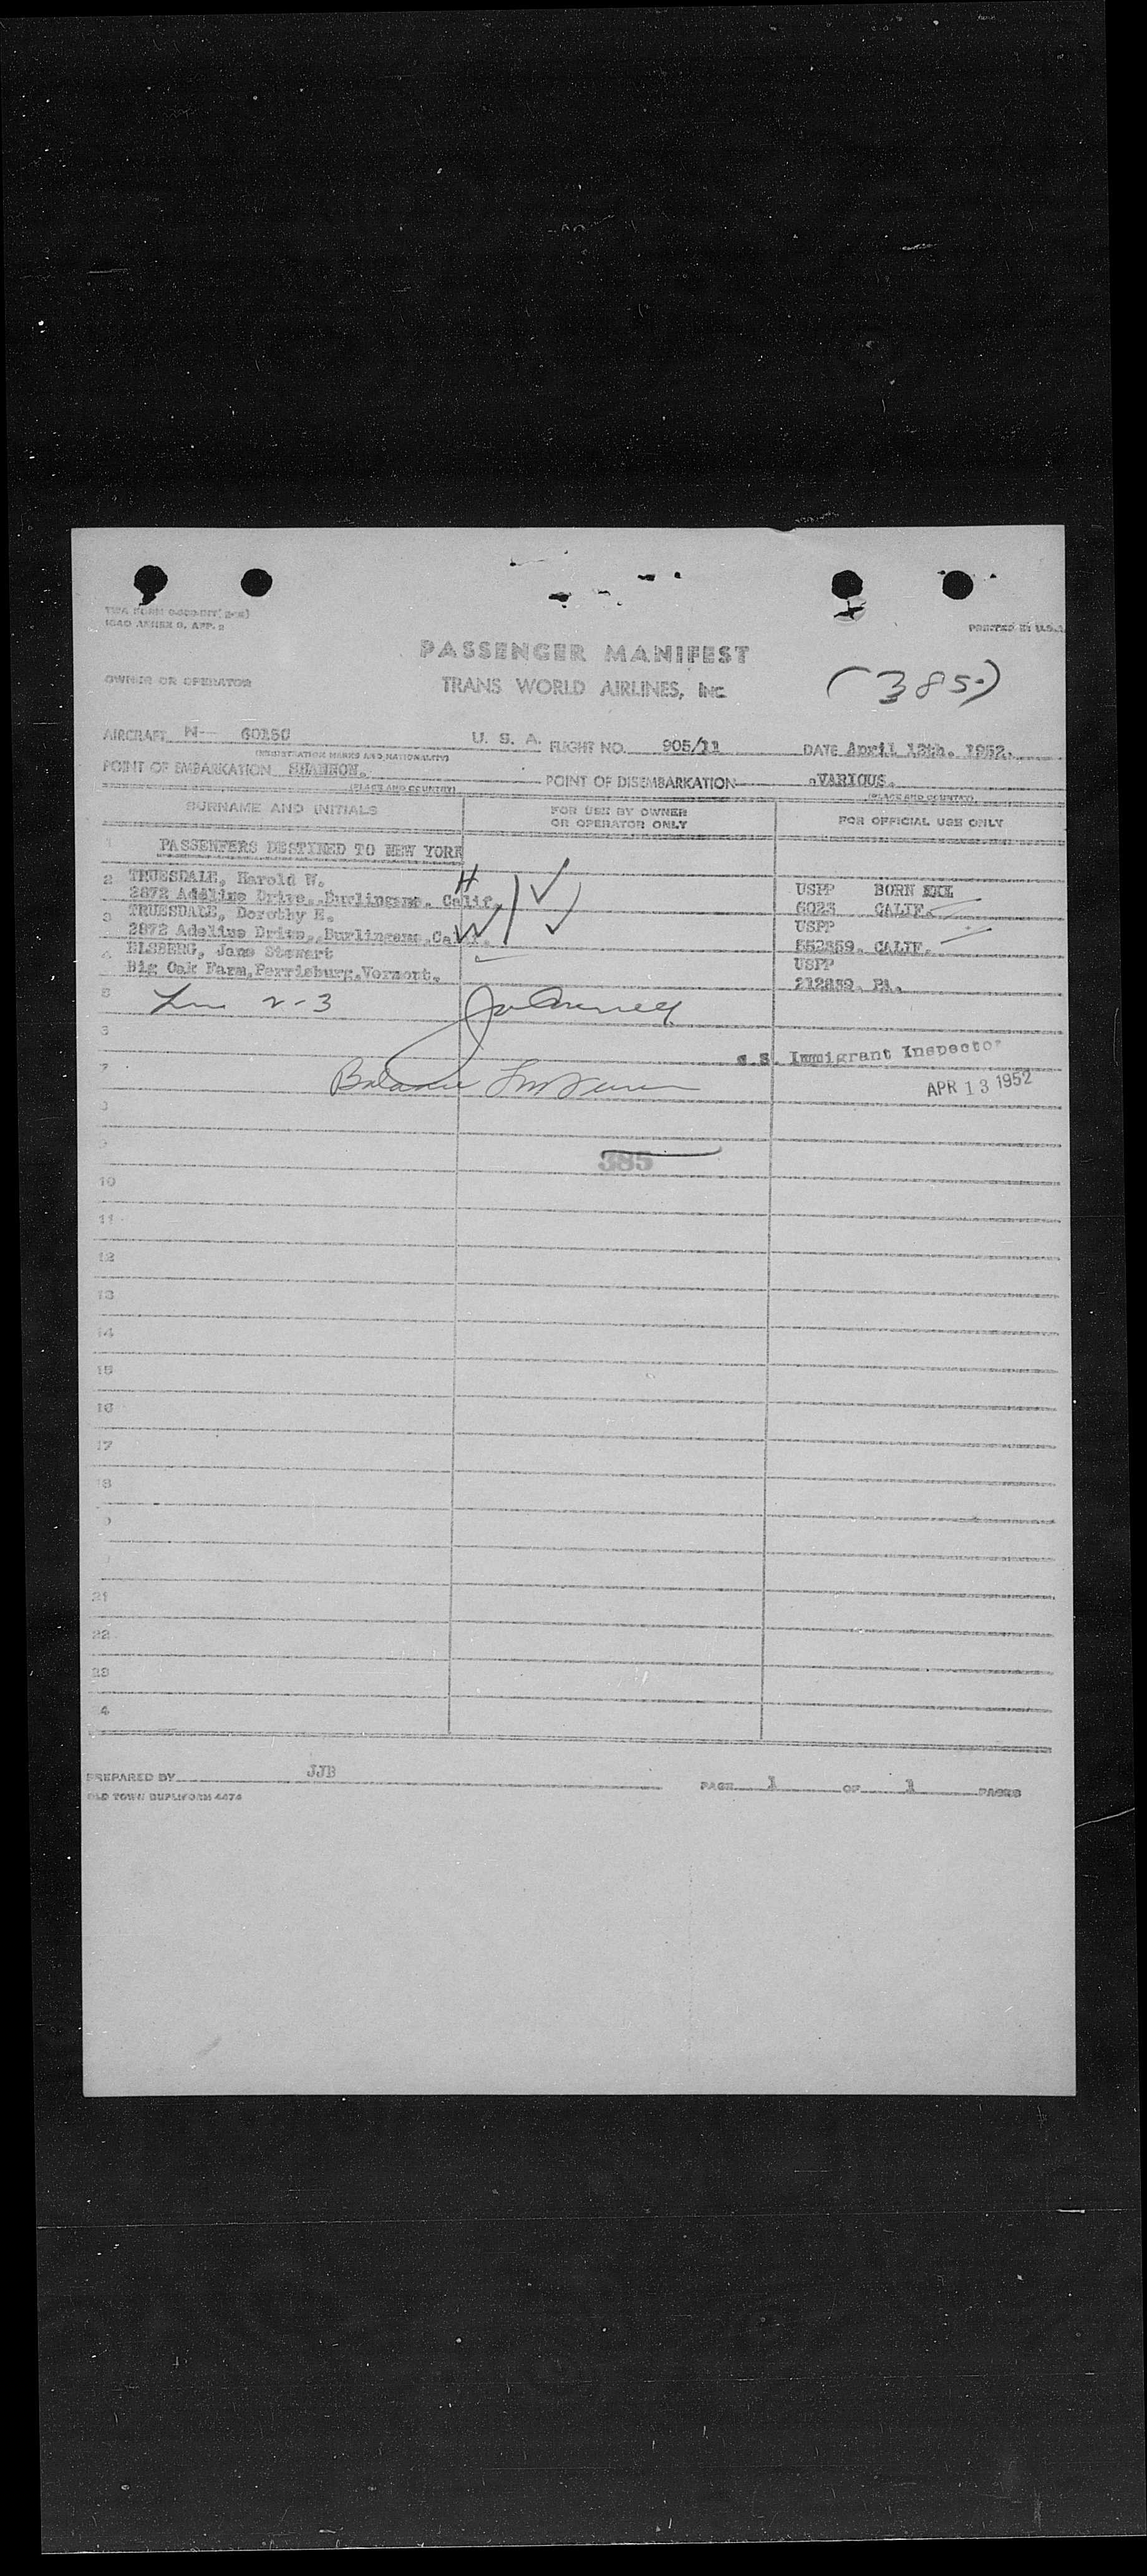 PRINTED IN U.S.A.
PASSENGER MANIFEST
TRANS WORLD AIRLINES, INC.
(385)
OWNER OR OPERATOR
AIRCRAFT N-- U. S. A. FLIGHT NO. 905/11 DATE April 12th. 1952.
(REGISTRATION MARKS AND NATIONALITY)
POINT OF EMBARKATION SHANNON. POINT OF DISEMBARKATION VARIOUS.
(PLACE AND COUNTRY) (PLACE AND COUNTRY)
SURNAME AND INITIALS FOR USE BY OWNER OR OPERATOR ONLY FOR OFFICIAL USE ONLY
1 PASSENFERS DESTINED TO NEW YORK
2 TRUESDALE, Harold W. H USPP BORN
2872 Adeline Drive,.Burlingame. Calif. 6023 CALIF.
3 TRUESDALE, Dorothy E. W USPP
2872 Adeline Drive,.Burlingame.Calif. CALIF.
4 ELSBERG, Jane Stewart USPP
Big Oak Farm,Ferrisburg.Vermont. PA.
5 2-3
6
Immigrant Inspector
7 Balance
APR 13 1952
8
9 385
10
11
12
13
14
15
16
17
18
21
22
23
4
PREPARED BY JJB PAGE 1 OF 1 PAGES
OLD TOWN DUPLIFORM 4474